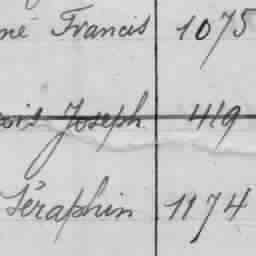 né Francis 1075
ois Joseph 419
Séraphin 1174